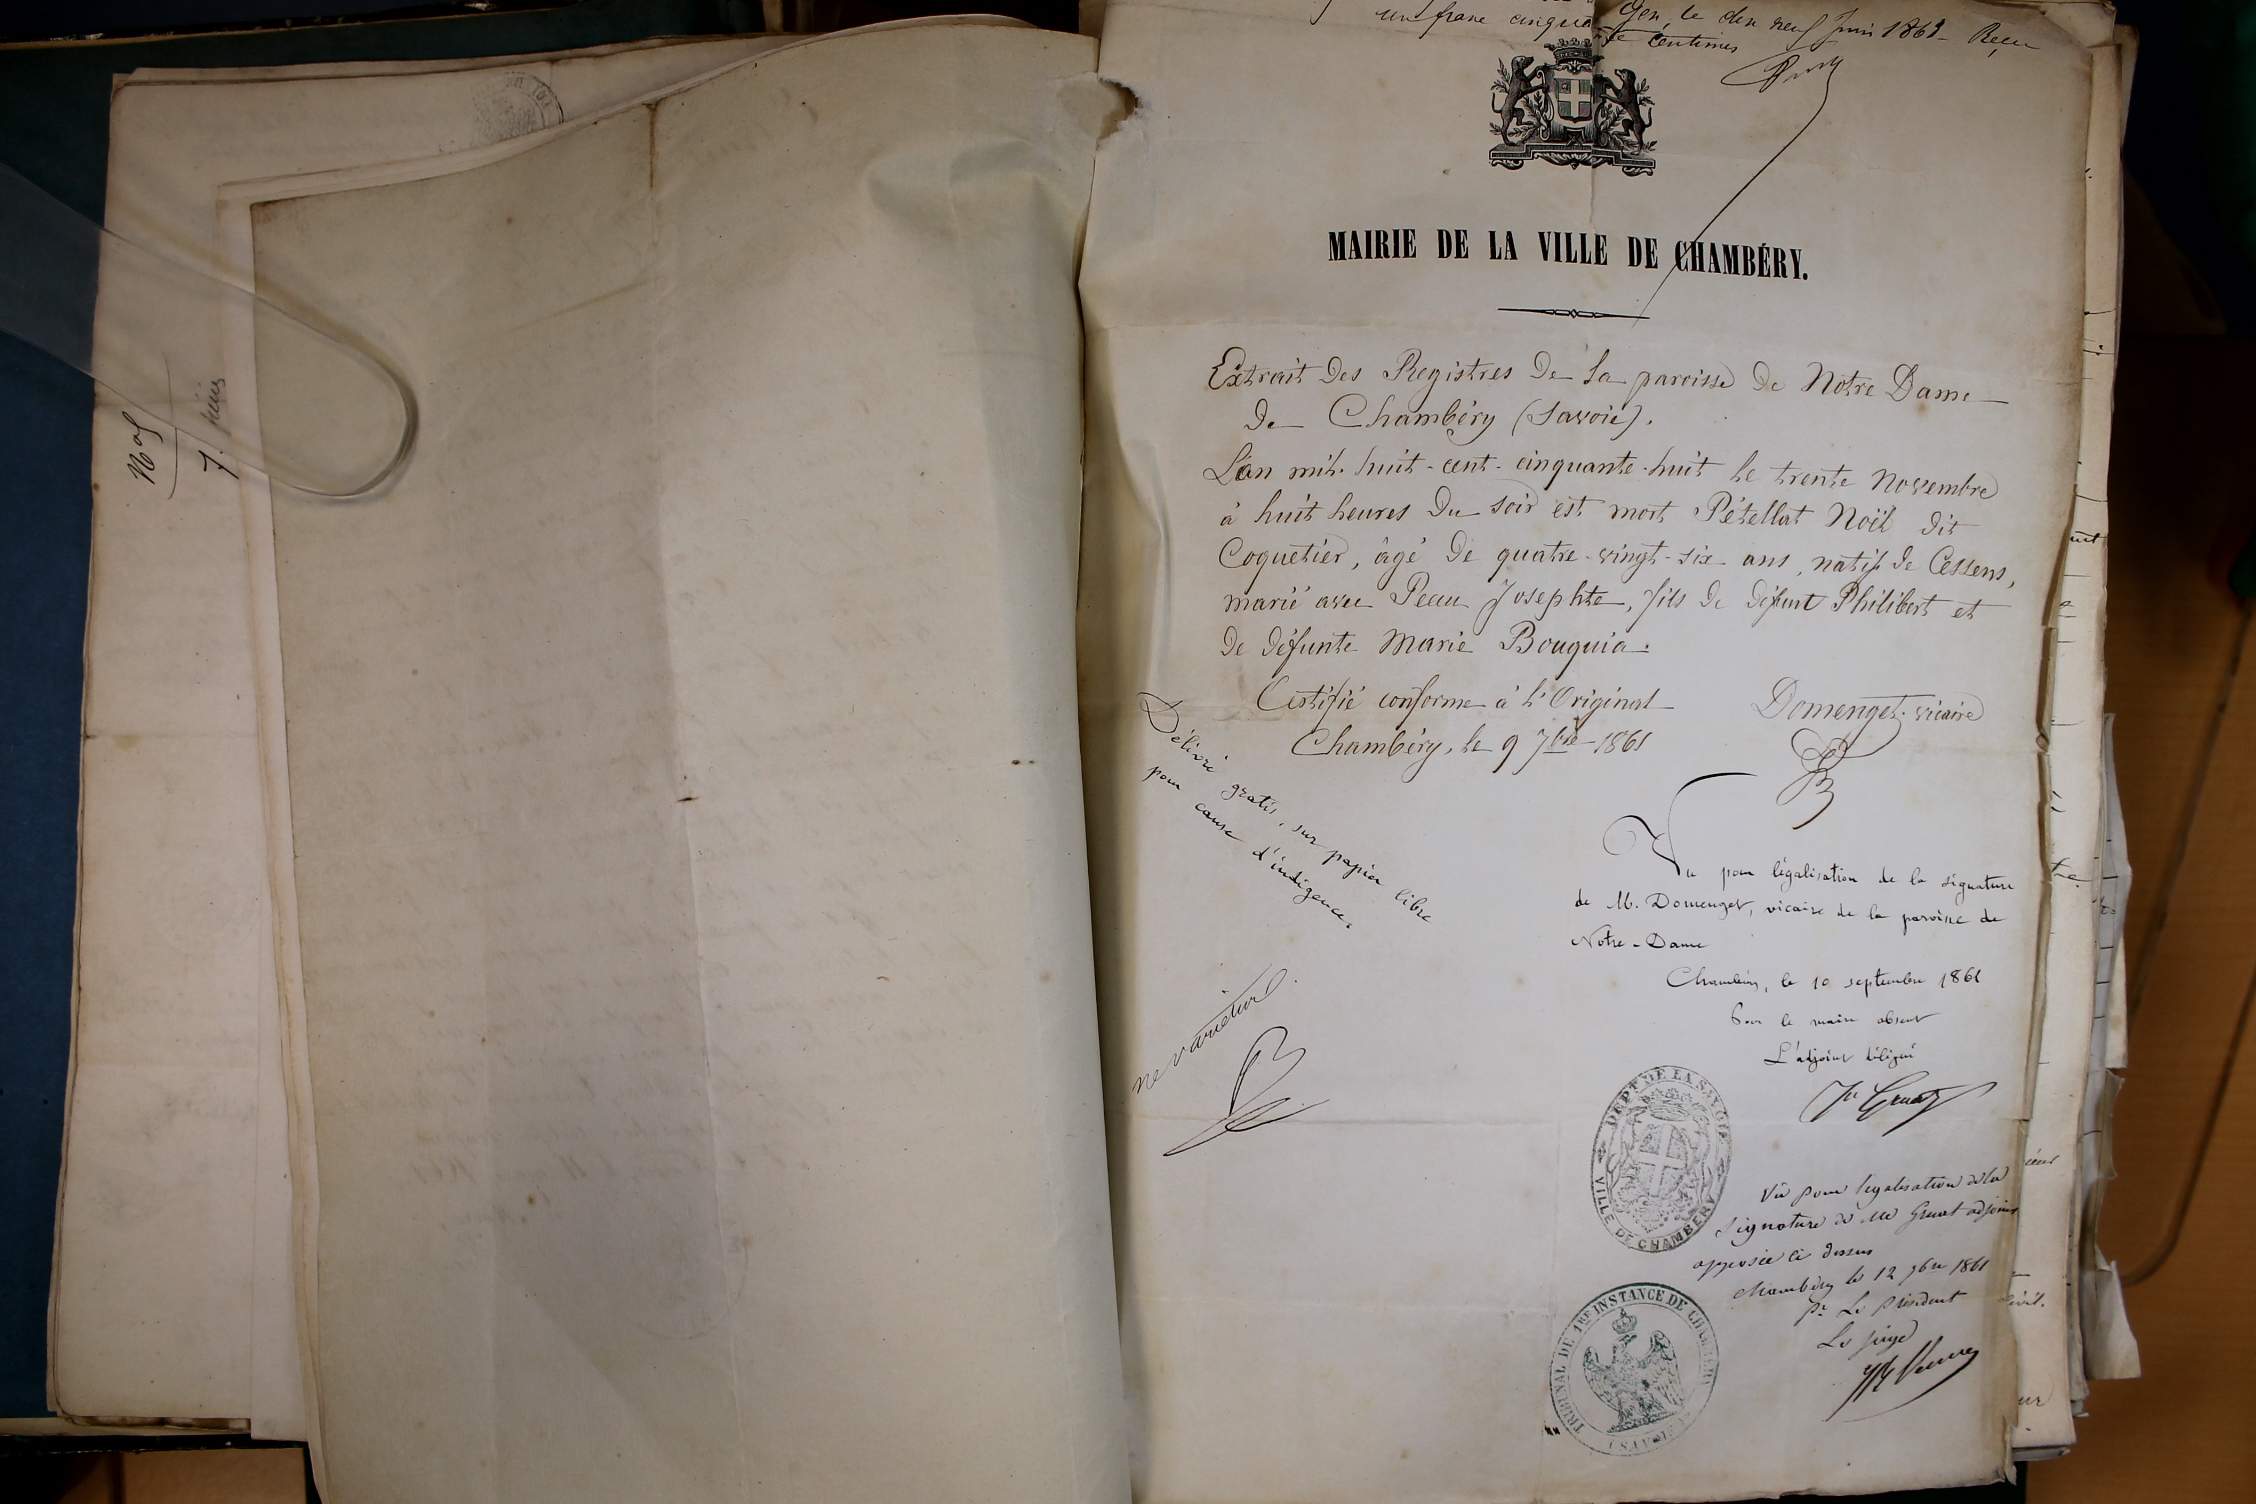 No 95
7. pièces
Gex, le dix neuf Juin 1863 Reçu
un franc cinquante centimes
MAIRIE DE LA VILLE DE CHAMBÉRY.
Extrait des Registres de la paroisse de Notre Dame
de Chambéry (Savoie).
L'an mil-huit-cent-cinquante-huit le trente novembre
à huit heures du soir est mort Pétellat Noël dit
Coquetier, âgé de quatre-vingt-six ans, natif de Cessens,
marié avec Josephte, fils de défunt Philibert et
de défunte Marie Bouquia.
Certifié conforme à l'Original
Domenget vicaire
Chambéry, le 9 7bre 1861
Délivré gratis, sur papier libre
pour cause d'indigence.
Vu pour légalisation de la signature
de M. Domenget, vicaire de la paroisse de
Notre-Dame
Chambéry, le 10 septembre 1861
Pour le maire absent
L'adjoint délégué
ne varietur
DEPT DE LA SAVOIE
VILLE DE CHAMBERY
Vu pour légalisation de la
signature de Mr Gruat adjoint
apposée ci dessus
Chambéry le 12 7bre 1861
Pr Le Président
Le juge
TRIBUNAL DE 1RE INSTANCE DE CHAMBERY
(SAVOIE)